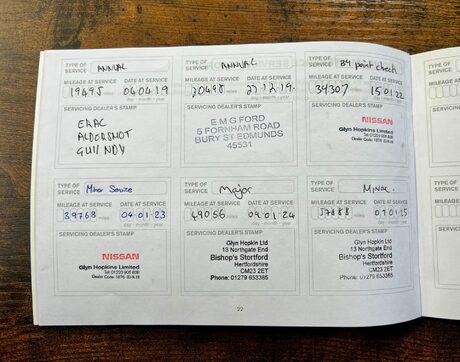 TYPE OF SERVICE ANNUAL
MILEAGE AT SERVICE DATE AT SERVICE
19495 miles 04.04.19
day - month - year
SERVICING DEALER'S STAMP
ERAC
ALDERSHOT
TYPE OF SERVICE ANNUAL
MILEAGE AT SERVICE DATE AT SERVICE
20498 miles 27.12.19.
day - month - year
SERVICING DEALER'S STAMP
E M G FORD
5 FORNHAM ROAD
BURY ST EDMUNDS
45531
TYPE OF SERVICE 84 point check
MILEAGE AT SERVICE DATE AT SERVICE
34307 miles 15.01.22
day - month - year
SERVICING DEALER'S STAMP
NISSAN
Glyn Hopkins Limited
TYPE OF SERVICE Minor Service
MILEAGE AT SERVICE DATE AT SERVICE
39768 miles 04.01.23
day - month - year
SERVICING DEALER'S STAMP
NISSAN
Glyn Hopkins Limited
TYPE OF SERVICE Major
MILEAGE AT SERVICE DATE AT SERVICE
49056 miles 09.01.24
day - month - year
SERVICING DEALER'S STAMP
Glyn Hopkin Ltd
13 Northgate End
Bishop's Stortford
Hertfordshire
CM23 2ET
Phone: 01279 653365
TYPE OF SERVICE MINOR.
MILEAGE AT SERVICE DATE AT SERVICE
57888 miles 07.01.25
day - month - year
SERVICING DEALER'S STAMP
Glyn Hopkin Ltd
13 Northgate End
Bishop's Stortford
Hertfordshire
CM23 2ET
Phone: 01279 653365
22